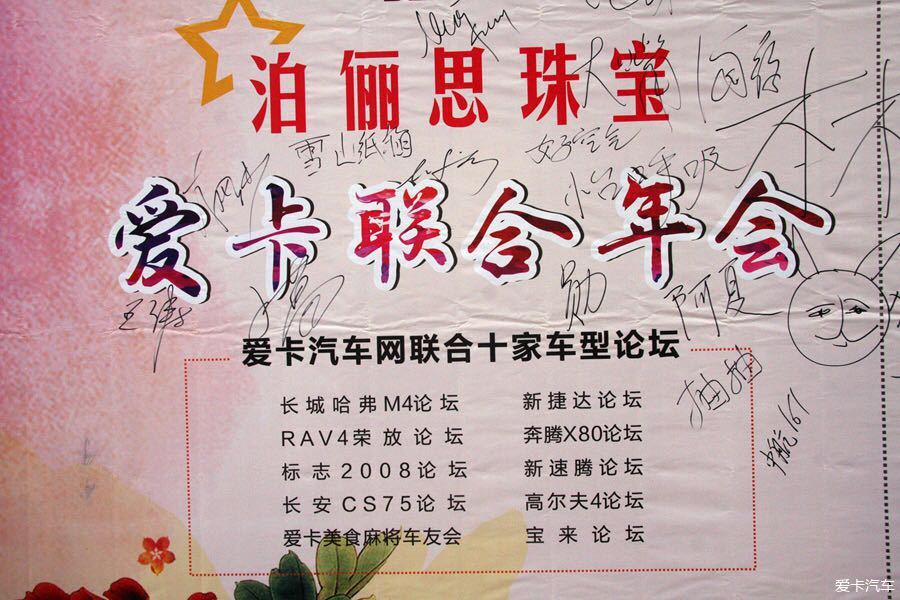 泊俪思珠宝
大嘴
雪山纸鹞
好空气
怡呼吸
爱卡联合年会
王
勋
阿夏
爱卡汽车网联合十家车型论坛
抽抽
长城哈弗M4论坛 新捷达论坛
RAV4荣放论坛 奔腾X80论坛
中航161
标志2008论坛 新速腾论坛
长安CS75论坛 高尔夫4论坛
爱卡美食麻将车友会 宝来论坛
爱卡汽车